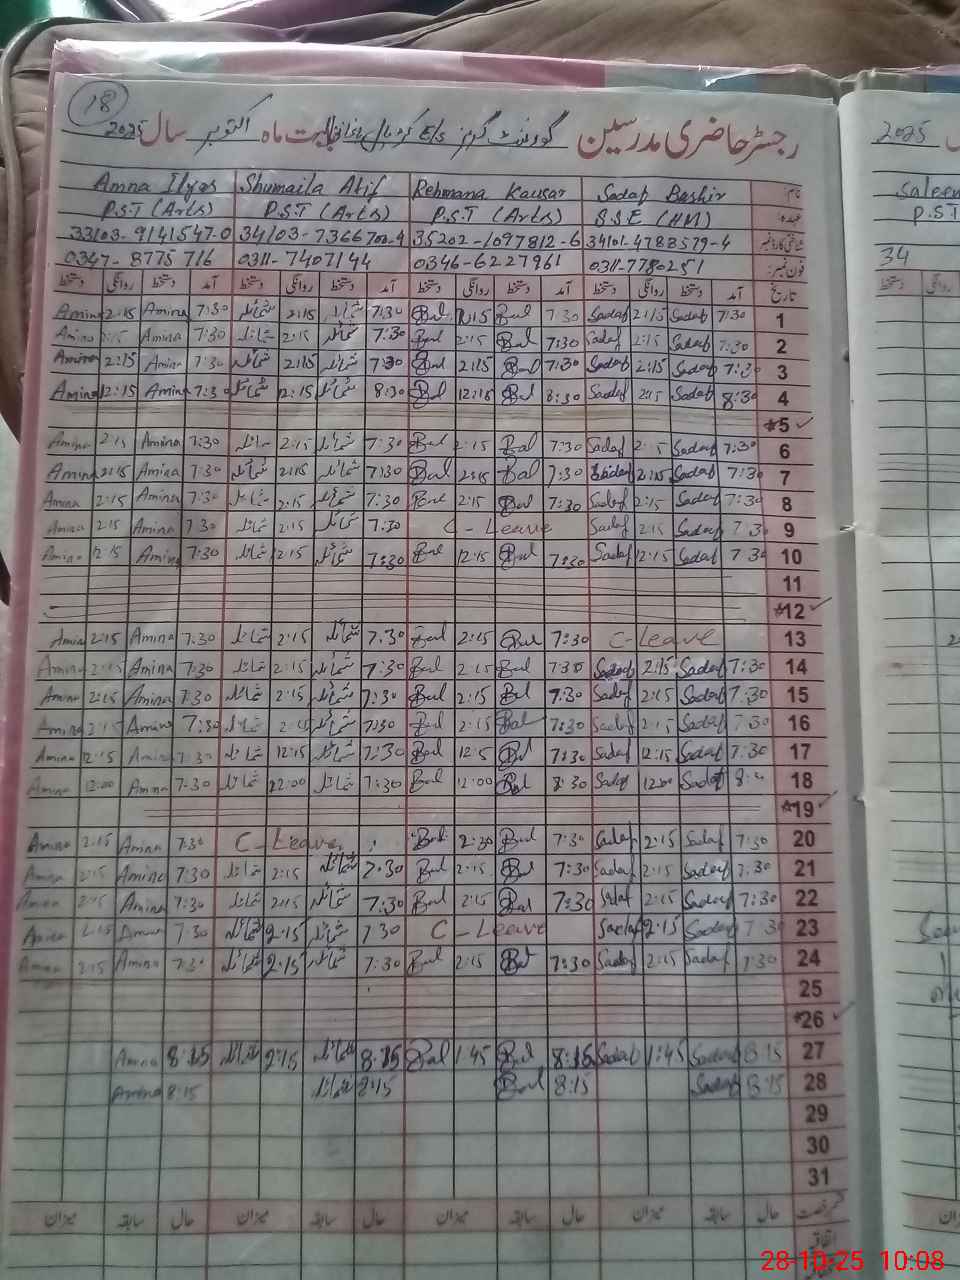 18
رجسٹر حاضری مدرسین گورنمنٹ گرلز E/S بابت ماہ اکتوبر سال 2025
نام: Sadaf Bashir Rehmana Kausar Shumaila Atif Amna Ilyas
عہدہ: S.S.E (HM) P.S.T (Arts) P.S.T (Arts) P.S.T (Arts)
شناختی کارڈ نمبر 34101-4788579-4 35202-1097812-6 34103-7366700-4 33103-9141547-0
فون نمبر: 0311-7780251 0346-6227961 0311-7407144 0347-8775716
تاریخ آمد دستخط روانگی دستخط آمد دستخط روانگی دستخط آمد دستخط روانگی دستخط آمد دستخط روانگی دستخط
1 7:30 Sadaf 2:15 Sadaf 7:30 2:15 7:30 شمائلہ 2:15 شمائلہ 7:30 Amina 2:15 Amina
2 7:30 Sadaf 2:15 Sadaf 7:30 2:15 7:30 شمائلہ 2:15 شمائلہ 7:30 Amina 2:15 Amina
3 7:30 Sadaf 2:15 Sadaf 7:30 2:15 7:30 شمائلہ 2:15 شمائلہ 7:30 Amina 2:15 Amina
4 8:30 Sadaf 2:15 Sadaf 8:30 12:15 8:30 شمائلہ 12:15 شمائلہ 7:30 Amina 12:15 Amina
*5 ✓
6 7:30 Sadaf 2:15 Sadaf 7:30 2:15 7:30 شمائلہ 2:15 شمائلہ 7:30 Amina 2:15 Amina
7 7:30 Sadaf 2:15 Sadaf 7:30 2:15 7:30 شمائلہ 2:15 شمائلہ 7:30 Amina 2:15 Amina
8 7:30 Sadaf 2:15 Sadaf 7:30 2:15 7:30 شمائلہ 2:15 شمائلہ 7:30 Amina 2:15 Amina
9 7:30 Sadaf 2:15 Sadaf C-Leave 7:30 شمائلہ 2:15 شمائلہ 7:30 Amina 2:15 Amina
10 7:30 Sadaf 12:15 Sadaf 7:30 12:15 7:30 شمائلہ 12:15 شمائلہ 7:30 Amina 12:15 Amina
11
*12 ✓
13 C-Leave 7:30 2:15 7:30 شمائلہ 2:15 شمائلہ 7:30 Amina 2:15 Amina
14 7:30 Sadaf 2:15 Sadaf 7:30 2:15 7:30 شمائلہ 2:15 شمائلہ 7:30 Amina 2:15 Amina
15 7:30 Sadaf 2:15 Sadaf 7:30 2:15 7:30 شمائلہ 2:15 شمائلہ 7:30 Amina 2:15 Amina
16 7:30 Sadaf 2:15 Sadaf 7:30 2:15 7:30 شمائلہ شمائلہ 7:30 Amina 2:15 Amina
17 7:30 Sadaf 12:15 Sadaf 7:30 12:15 7:30 شمائلہ 12:15 شمائلہ 7:30 Amina 12:15 Amina
18 Sadaf 12:00 Sadaf 8:30 12:00 7:30 شمائلہ شمائلہ 7:30 Amina 12:00 Amina
*19 ✓
20 7:30 Sadaf 2:15 Sadaf 7:30 2:30 C-Leave 7:30 Amina 2:15 Amina
21 7:30 Sadaf 2:15 Sadaf 7:30 2:15 7:30 شمائلہ 2:15 شمائلہ 7:30 Amina 2:15 Amina
22 7:30 Sadaf 2:15 Sadaf 7:30 2:15 7:30 شمائلہ 2:15 شمائلہ 7:30 Amina 2:15 Amina
23 7:30 Sadaf 2:15 Sadaf C-Leave 7:30 شمائلہ 2:15 شمائلہ 7:30 Amina Amina
24 7:30 Sadaf 2:15 Sadaf 7:30 2:15 7:30 شمائلہ 2:15 شمائلہ 7:30 Amina 2:15 Amina
25
*26 ✓
27 8:15 Sadaf 1:45 Sadaf 8:15 1:45 8:15 شمائلہ 2:15 شمائلہ 8:15 Amina
28 8:15 Sadaf 8:15 8:15 شمائلہ 8:15 Amina
29
30
31
رخصت حال سابقہ میزان حال سابقہ میزان حال سابقہ میزان حال سابقہ میزان
2025
Saleem
P.S.T
34
28-10-25 10:08